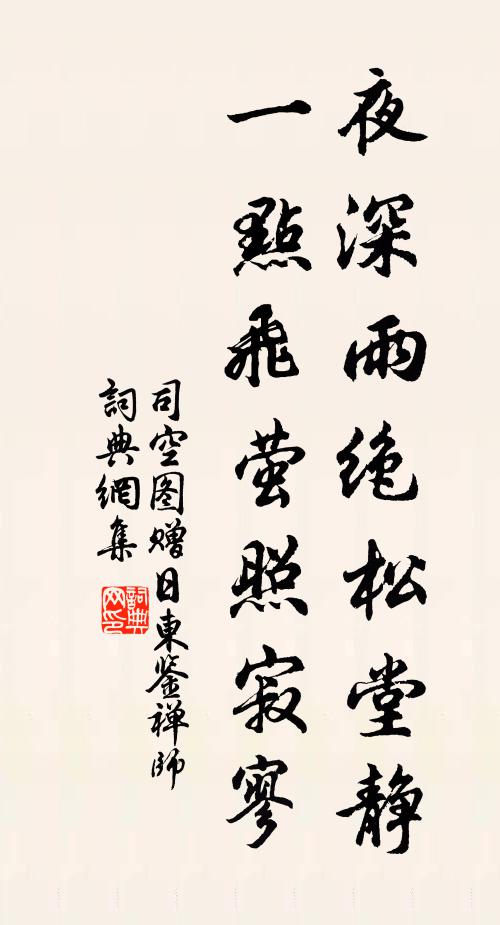 夜深雨绝松堂静
一點飛萤照寂寥
司空图赠日東鉴禅师
詞典網集
詞典
网印